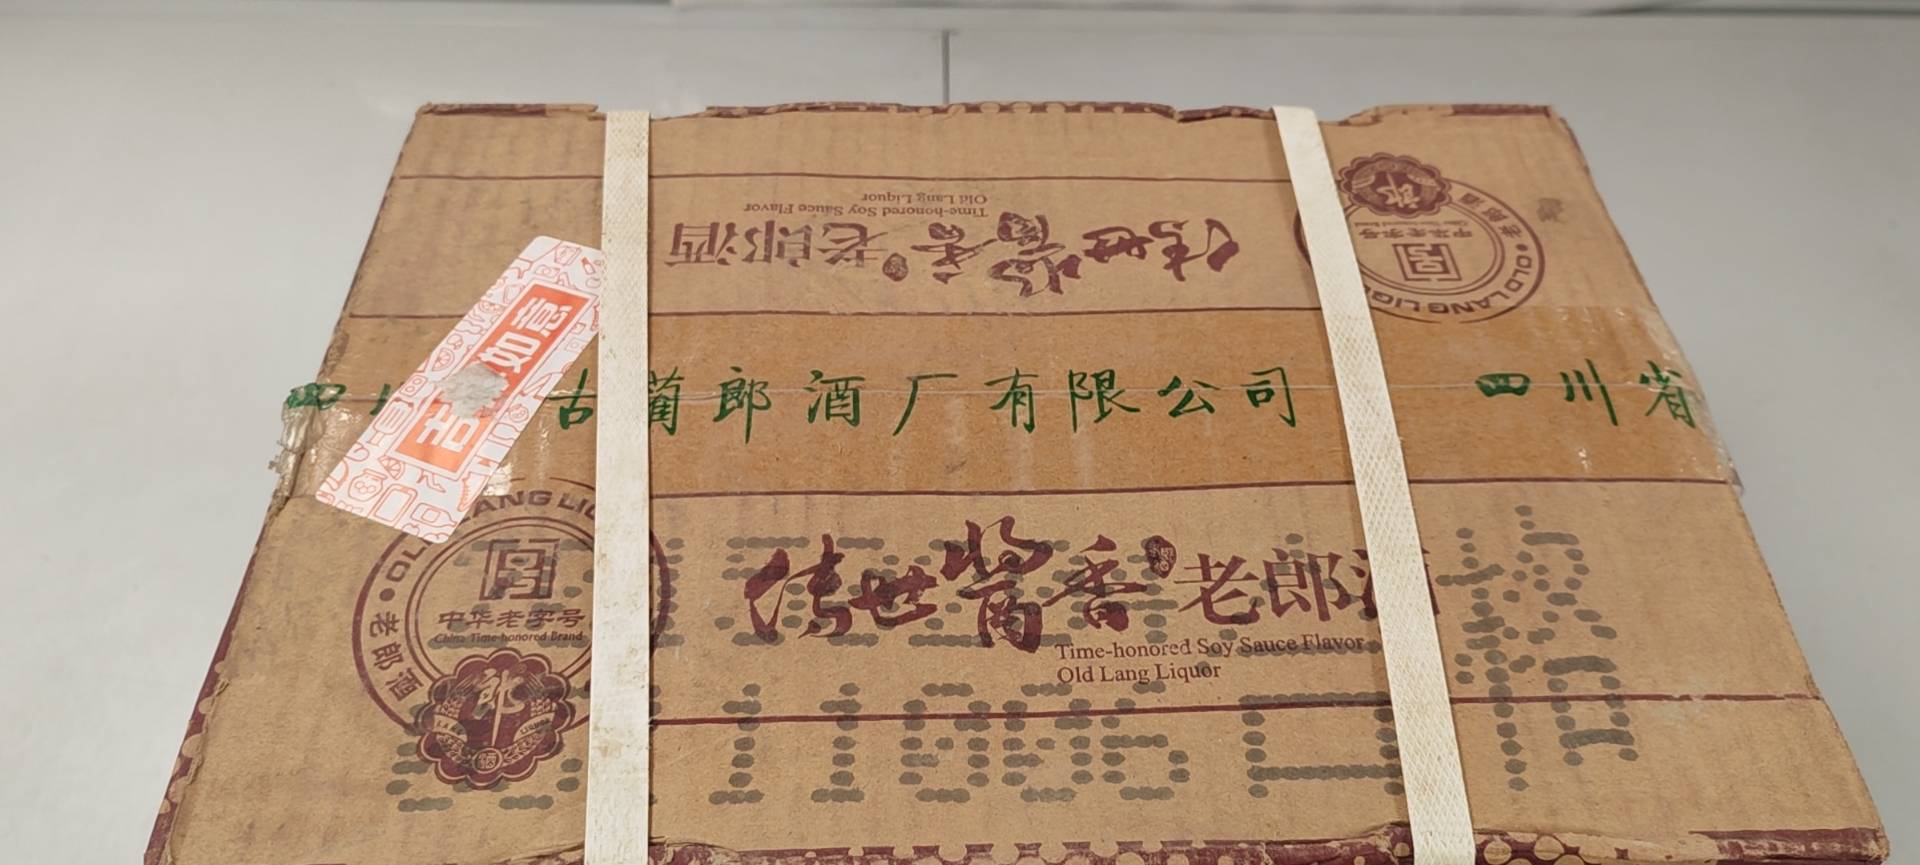 Old Lang Liquor
Time-honored Soy Sauce Flavor
传世酱香老郎酒
老郎酒
中华老字号
OLD LANG LIQ
郎
如意
吉
四川
古蔺郎酒厂有限公司
四川省
LANG LI
OL
老郎酒
中华老字号
China Time-honored Brand
郎
LIQUOR
传世酱香老郎酒
Time-honored Soy Sauce Flavor
Old Lang Liquor